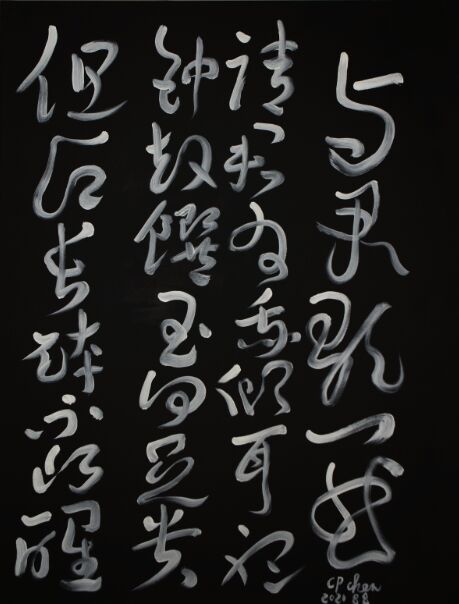 与君歌一曲
請君为我傾耳听
鈡鼓饌玉何足贵
但愿长醉不愿醒
CP Chen
2020 8.8